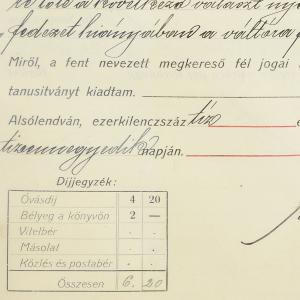 a következő választ
fedezet hiányában a váltóra
Miről, a fent nevezett megkereső fél jogai
tanusitványt kiadtam.
Alsólendván, ezerkilenczszáz tíz
tizennegyedik napján.
Díjjegyzék:
Óvásdíj 4 20
Bélyeg a könyvön 2 —
Vitelbér . .
Másolat . .
Közlés és postabér . .
Összesen 6. 20